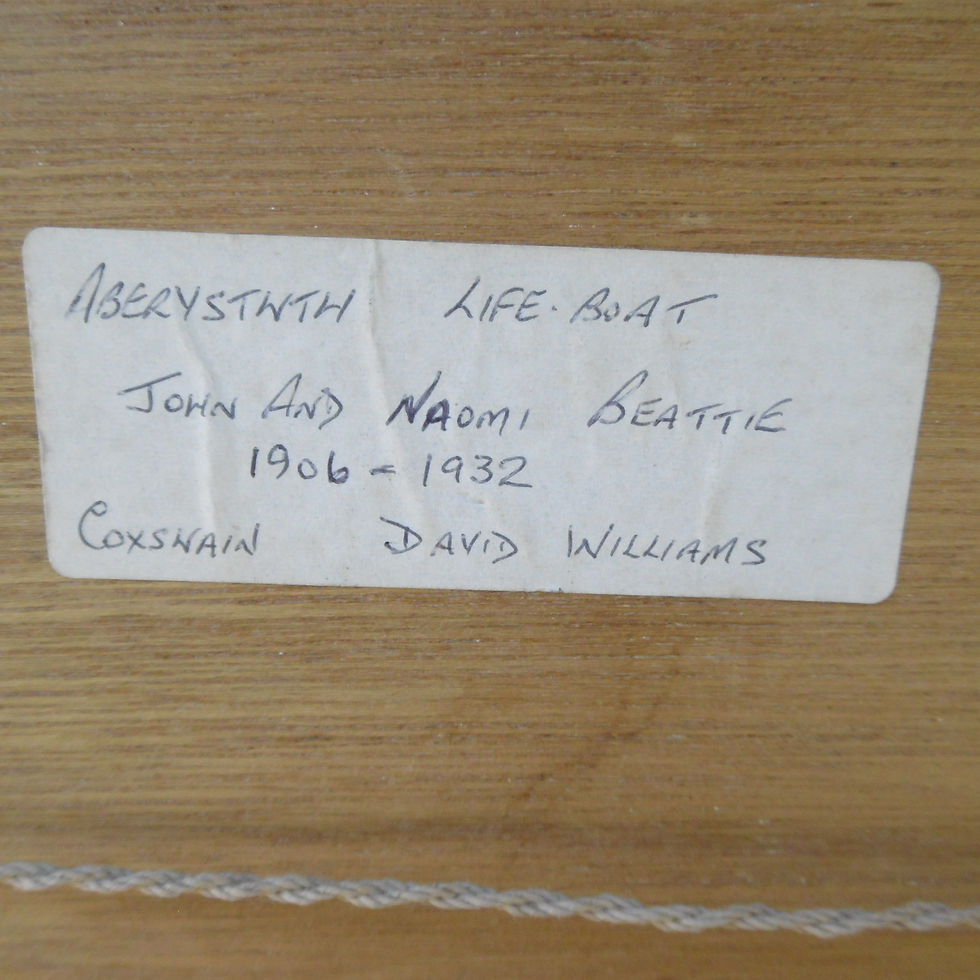 ABERYSTWTH LIFE-BOAT
JOHN AND NAOMI BEATTIE
1906 - 1932
COXSWAIN DAVID WILLIAMS